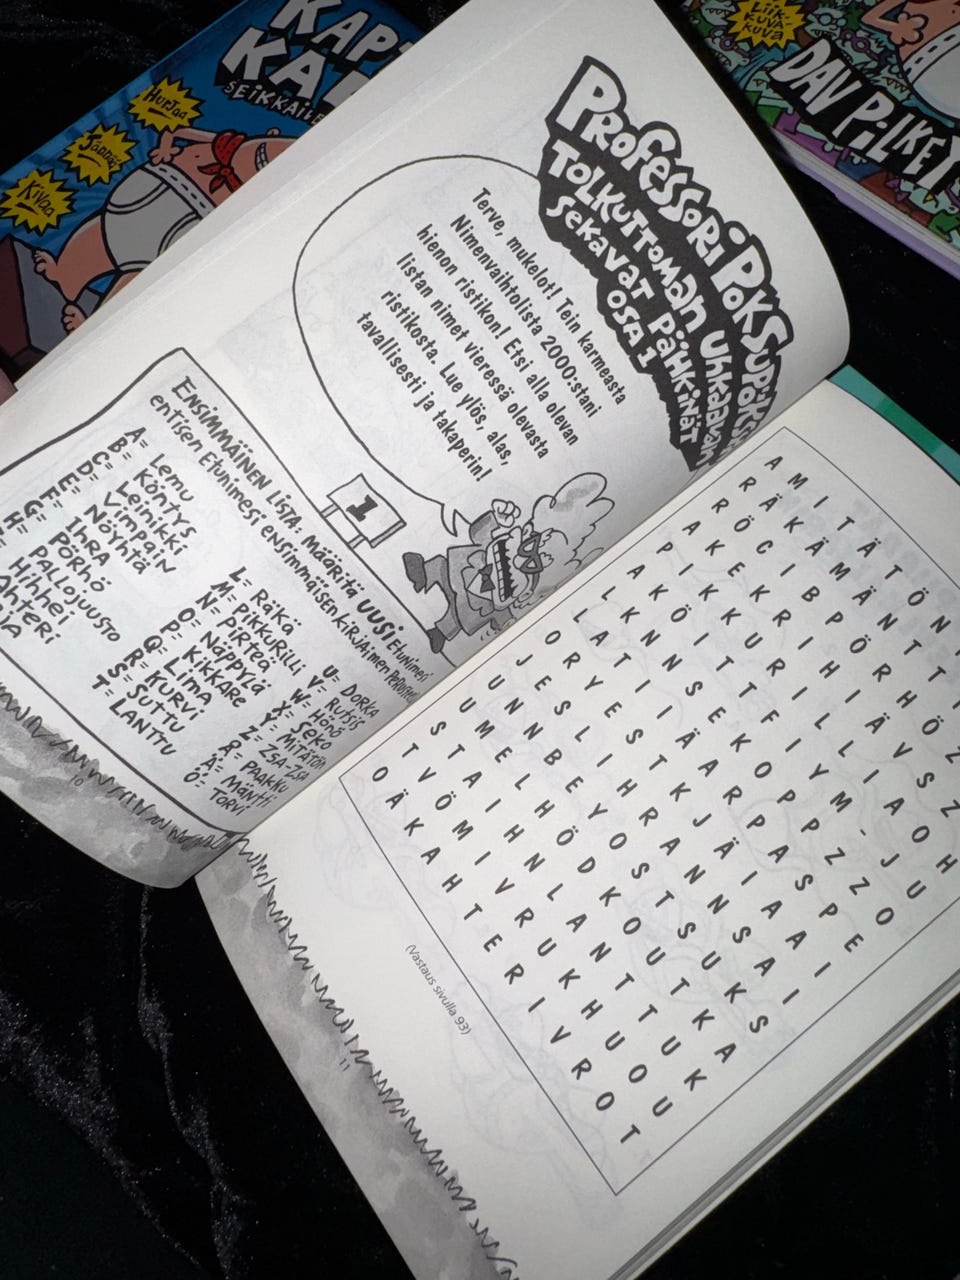 KAP
KA
SEIKKAILE
HURJAA
JÄNNÄÄ
KIVAA
LIIK-
KUVA-
KUVA
DAV PILKEY
PROFESSORI POKSUPÖKSY
TOLKUTTOMAN UHKAAVAN
SEKAVAT PÄHKINÄT
OSA 1
Terve, mukelot! Tein karmeasta
Nimenvaihtolista 2000:stani
hienon ristikon! Etsi alla olevan
listan nimet vieressä olevasta
ristikosta. Lue ylös, alas,
tavallisesti ja takaperin!
1
ENSIMMÄINEN LISTA: MÄÄRITÄ UUSI ETUNIMESI
ENTISEN ETUNIMESI ENSIMMÄISEN KIRJAIMEN PERUSTEELLA
A= LEMU
B= KÖNTYS
C= TEINIKKI
D= VIMPAIN
E= NÖYHTÄ
F= IHRA
G= PÖRHÖ
H= PALLOJUUSTO
HIHHEI
AHTERI
L= RÄKÄ
M= PIKKURILLI
N= PIRTEÄ
O= NÄPPYLÄ
P= KIKKARE
Q= LIMA
R= KURVI
S= SUTTU
T= LANTTU
U= DORKA
V= RUTSIS
W= HÖNÖ
X= SEKO
Y= MITÄTÖN
Z= ZSA-ZSA
Å= PAAKKU
Ä= MÄNTTI
Ö= TORVI
10
A M I T Ä T Ö N
R Ä K Ä M Ä N T T I
R Ö C I B P Ö R H Ö Z
A K E K R I H I Ä V S Z
P I K K U R I L L I A O H
A K Ö I T T F I Y M - J U
L K N N S E K O P P Z Z O
L A T I I Ä A R P A S P E
O R Y E S T K J Ä I A A I
J E S L I H R A N N S A I
U N N B E Y O S T S U K S
U M E L H Ö D K O U T K A
S T A I H N L A N T T U K
T V Ö M I V R U K H U O U
O Ä K A H T E R I V R O T
(Vastaus sivulla 93)
11